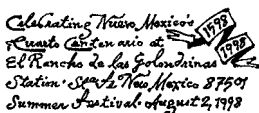 Celebrating Nuevo Mexico's
Cuarto Centenario at
El Rancho de las Golondrinas
Station · Sta Fe New Mexico 87501
Summer Festival · August 2, 1998
1598
1998